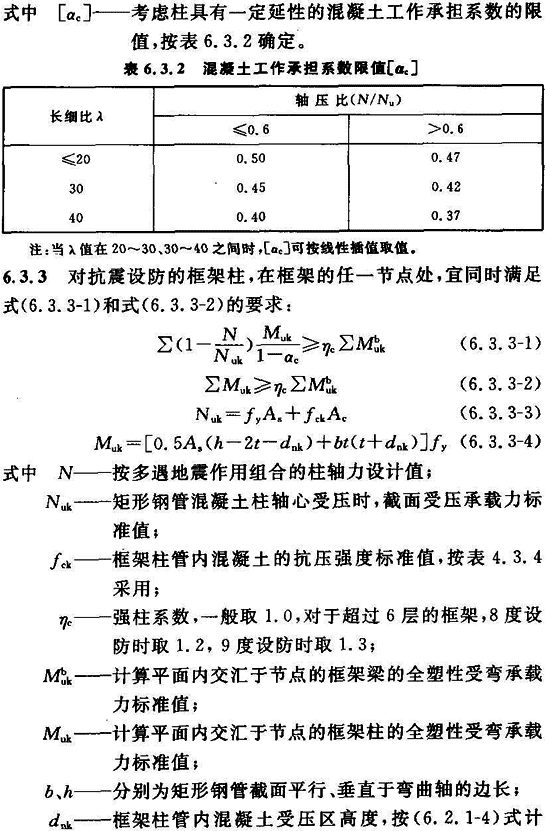 式中 [αc]——考虑柱具有一定延性的混凝土工作承担系数的限
值,按表 6.3.2 确定。
表 6.3.2 混凝土工作承担系数限值[αc]
长细比 λ
轴 压 比(N/Nu)
≤0.6 >0.6
≤20 0.50 0.47
30 0.45 0.42
40 0.40 0.37
注:当 λ 值在 20~30、30~40 之间时,[αc]可按线性插值取值。
6.3.3 对抗震设防的框架柱,在框架的任一节点处,宜同时满足
式(6.3.3-1)和式(6.3.3-2)的要求:
∑(1-N/Nuk)Muk/(1-αc)≥ηc∑Mᵇuk (6.3.3-1)
∑Muk≥ηc∑Mᵇuk (6.3.3-2)
Nuk=fyAs+fckAc (6.3.3-3)
Muk=[0.5As(h-2t-dnk)+bt(t+dnk)]fy (6.3.3-4)
式中 N——按多遇地震作用组合的柱轴力设计值;
Nuk——矩形钢管混凝土柱轴心受压时,截面受压承载力标
准值;
fck——框架柱管内混凝土的抗压强度标准值,按表 4.3.4
采用;
ηc——强柱系数,一般取 1.0,对于超过 6 层的框架,8 度设
防时取 1.2, 9 度设防时取 1.3;
Mᵇuk——计算平面内交汇于节点的框架梁的全塑性受弯承载
力标准值;
Muk——计算平面内交汇于节点的框架柱的全塑性受弯承载
力标准值;
b、h——分别为矩形钢管截面平行、垂直于弯曲轴的边长;
dnk——框架柱管内混凝土受压区高度,按(6.2.1-4)式计